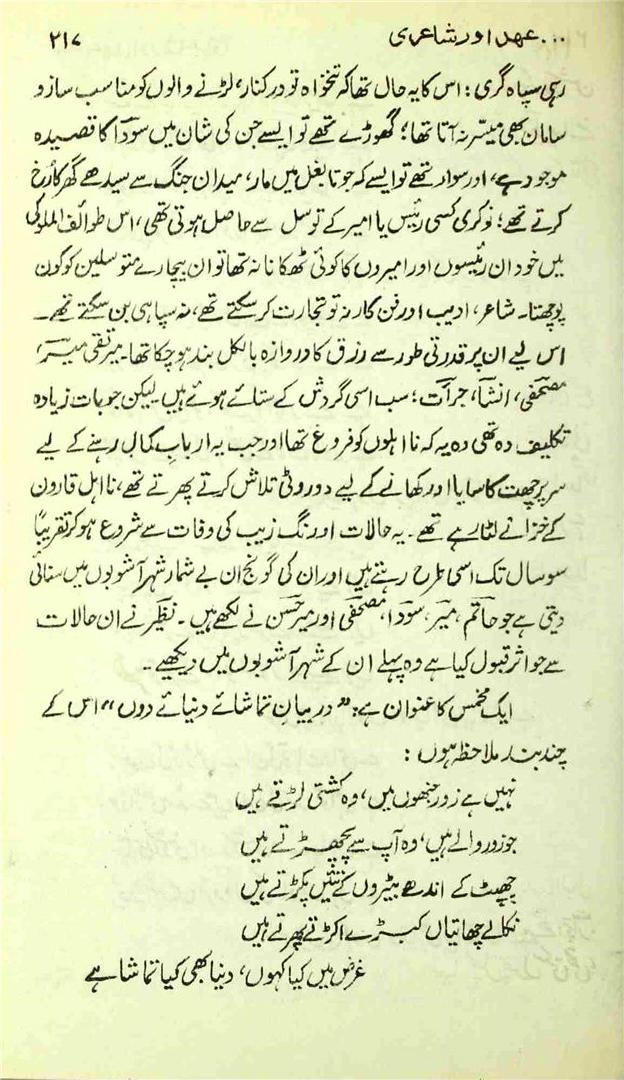 ... عہد اور شاعری ۲۱۷
رہی سپاہ گری : اس کا یہ حال تھا کہ تنخواہ تو درکنار، لڑنے والوں کو مناسب ساز و
سامان بھی میسّر نہ آتا تھا؛ گھوڑے تھے تو ایسے جن کی شان میں سوداؔ کا قصیدہ
موجود ہے، اور سوار تھے تو ایسے کہ جوتا بغل میں مار، میدانِ جنگ سے سیدھے گھر کا رُخ
کرتے تھے؛ نوکری کسی رئیس یا امیر کے توسل سے حاصل ہوتی تھی، اس طوائف الملوکی
میں خود ان رئیسوں اور امیروں کا کوئی ٹھکانا نہ تھا تو ان بیچارے متوسلین کو کون
پوچھتا۔ شاعر، ادیب اور فن کار نہ تو تجارت کر سکتے تھے، نہ سپاہی بن سکتے تھے۔
اس لیے ان پر قدرتی طور سے رزق کا دروازہ بالکل بند ہو چکا تھا۔ میر تقی میرؔ،
مصحفیؔ، انشاؔ، جرأتؔ؛ سب اسی گردش کے ستائے ہوئے ہیں۔ لیکن جو بات زیادہ
تکلیف دہ تھی وہ یہ کہ نااہلوں کو فروغ تھا اور جب یہ اربابِ کمال رہنے کے لیے
سر پر چھت کا سایا اور کھانے کے لیے دو روٹی تلاش کرتے پھرتے تھے، نااہل قارون
کے خزانے لٹا رہے تھے۔ یہ حالات اورنگ زیب کی وفات سے شروع ہو کر تقریباً
سو سال تک اسی طرح رہتے ہیں اور ان کی گونج ان بے شمار شہر آشوبوں میں سنائی
دیتی ہے جو حاتمؔ، میرؔ، سوداؔ، مصحفیؔ اور میر حسنؔ نے لکھے ہیں۔ نظیرؔ نے ان حالات
سے جو اثر قبول کیا ہے وہ پہلے ان کے شہر آشوبوں میں دیکھیے۔
ایک مخمس کا عنوان ہے: "در بیانِ تماشائے دنیائے دوں" اس کے
چند بند ملاحظہ ہوں :
نہیں ہے زور جنھوں میں، وہ کشتی لڑتے ہیں
جو زور والے ہیں، وہ آپ سے پچھڑتے ہیں
جھپٹ کے اندھے بٹیروں کے تئیں پکڑتے ہیں
نکالے چھاتیاں کبڑے اکڑتے پھرتے ہیں
غرض میں کیا کہوں، دنیا بھی کیا تماشا ہے